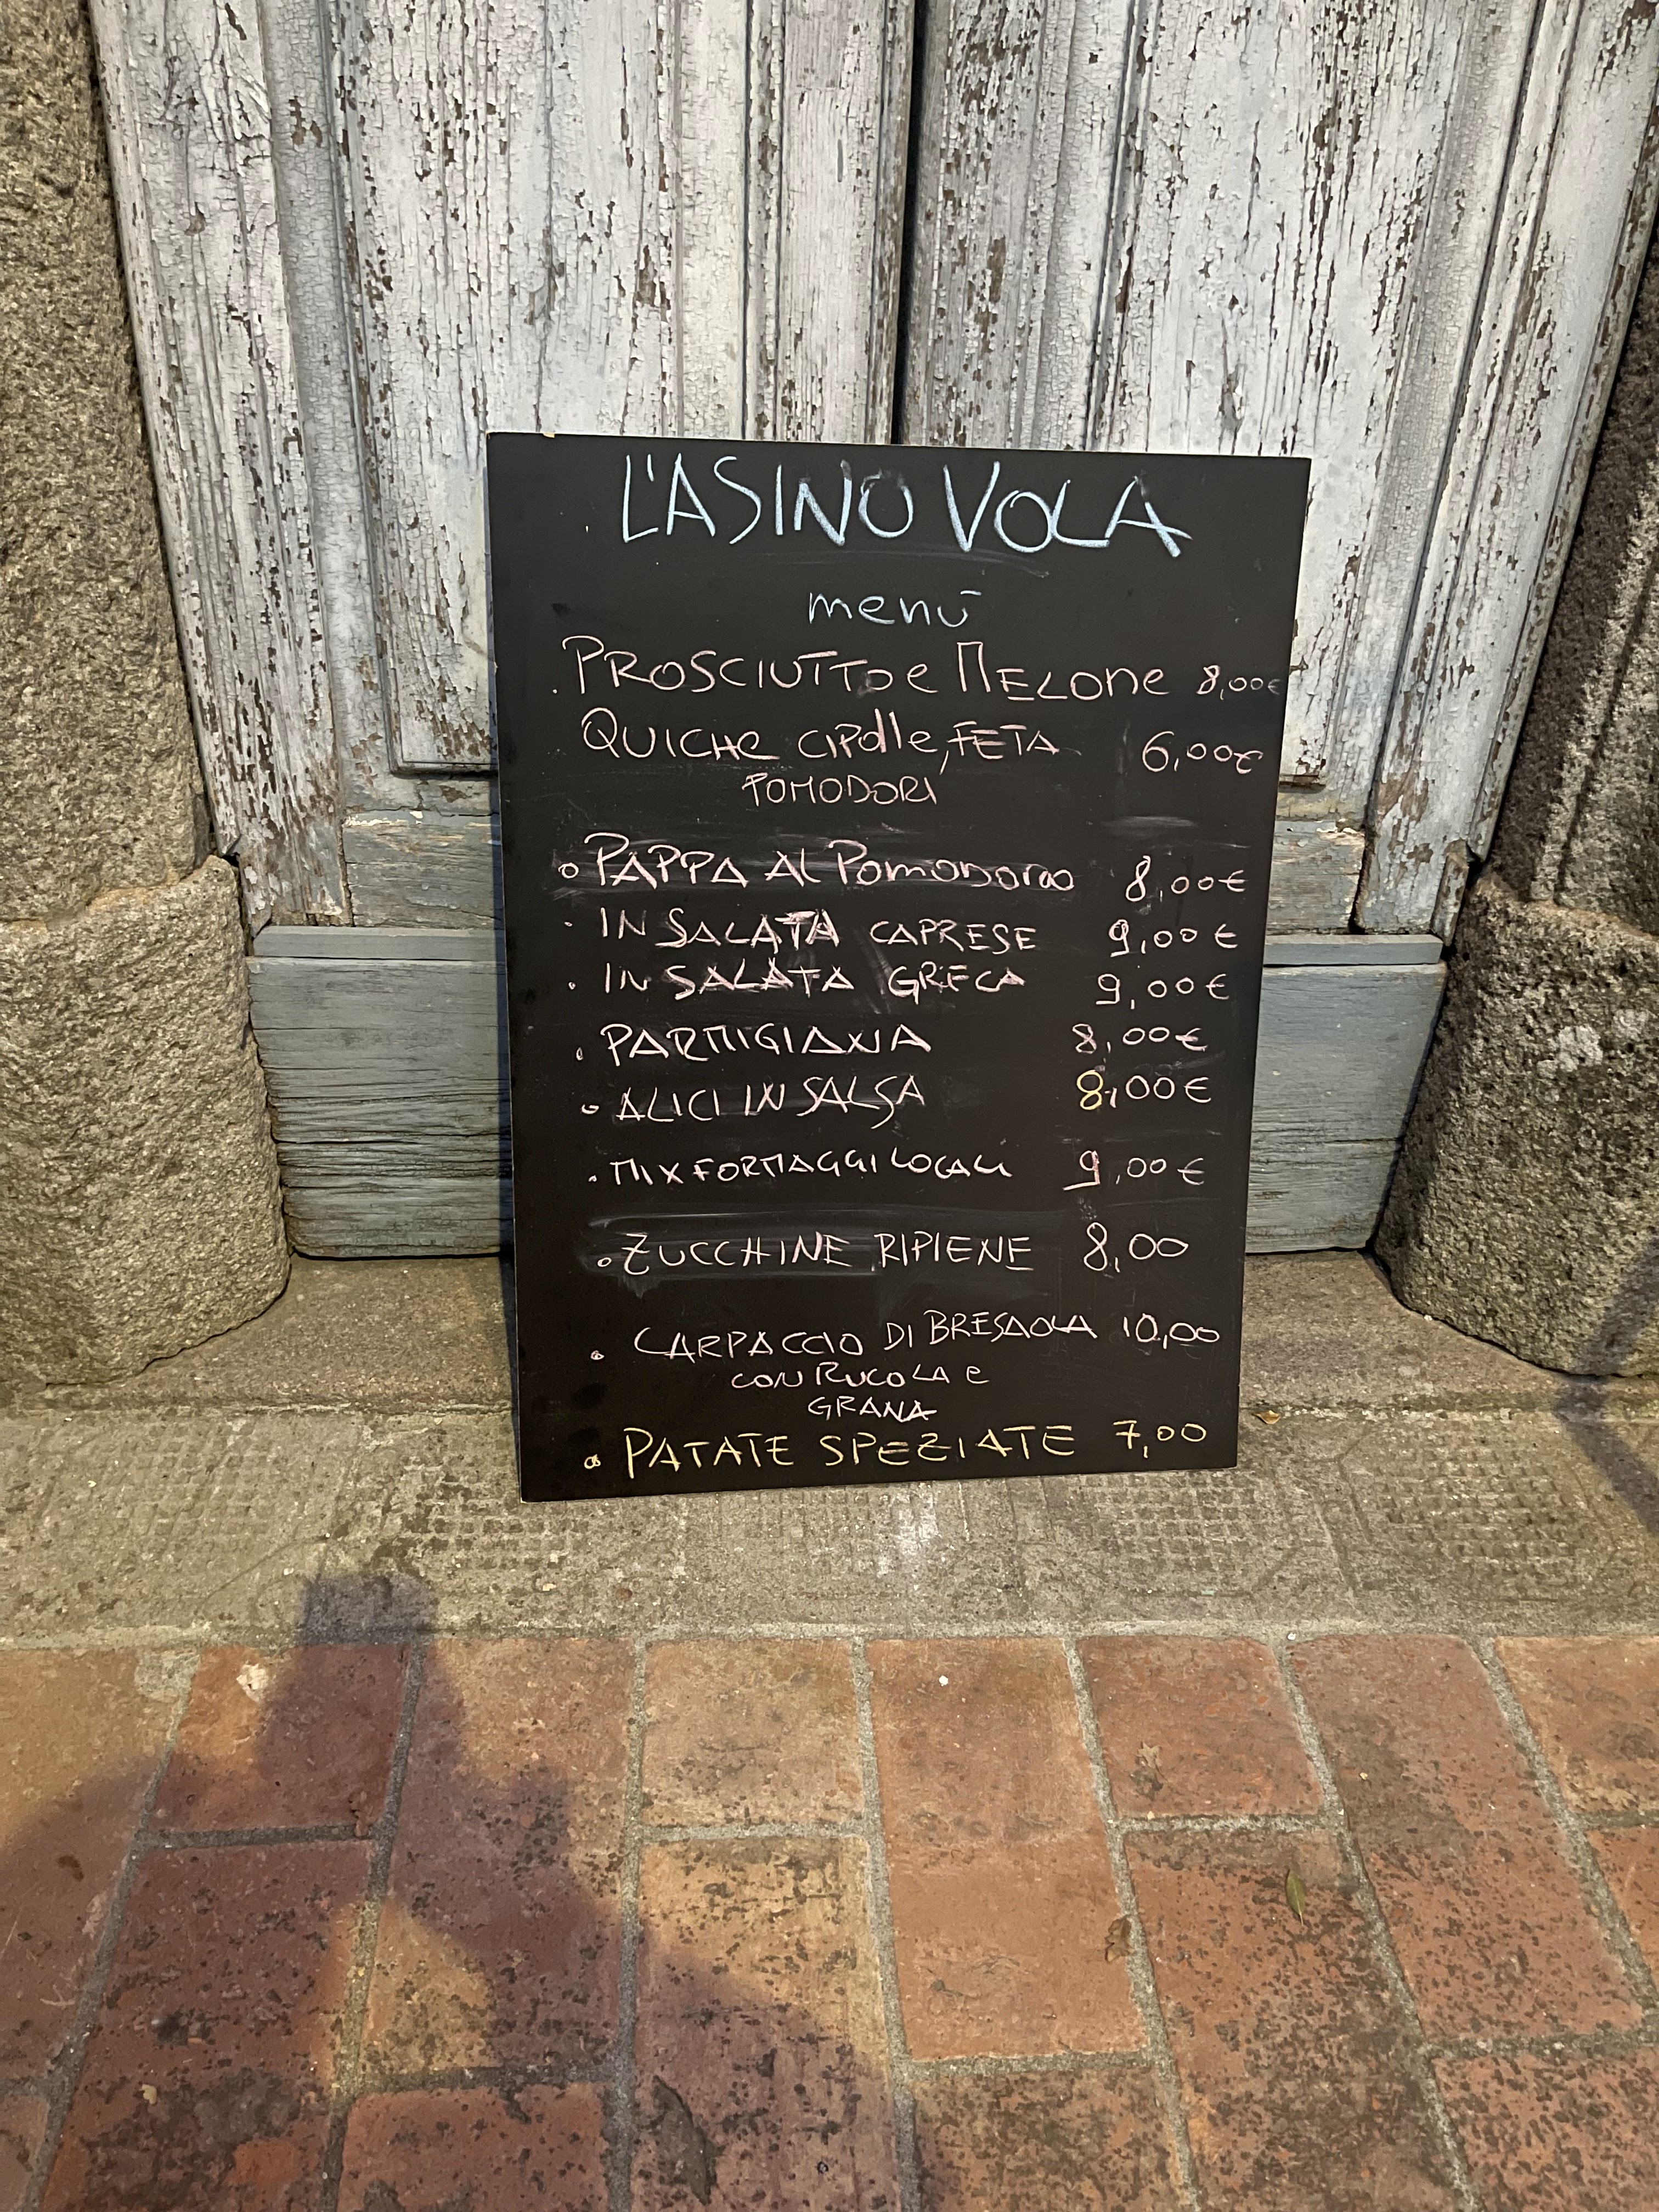 L'ASINO VOLA
menù
. PROSCIUTTO e MELONE 8,00€
QUICHE CIPOLLE, FETA 6,00€
POMODORI
° PAPPA AL POMODORO 8,00€
· INSALATA CAPRESE 9,00€
· INSALATA GRECA 9,00€
. PARMIGIANA 8,00€
° ALICI IN SALSA 8,00€
. MIX FORMAGGI LOCALI 9,00€
. ZUCCHINE RIPIENE 8,00
. CARPACCIO DI BRESAOLA 10,00
CON RUCOLA e
GRANA
. PATATE SPEZIATE 7,00